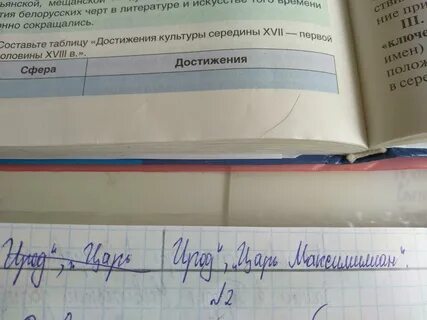 ьянской, мещанской
тия белорусских черт в литературе и искусстве того времени
енно сокращались.
Составьте таблицу «Достижения культуры середины XVII — первой
оловины XVIII в.».
Сфера Достижения
ние при
III.
«ключе
имен)
полож
в сере
Ирод", „Царь Ирод", „Царь Максимилиан".
№2